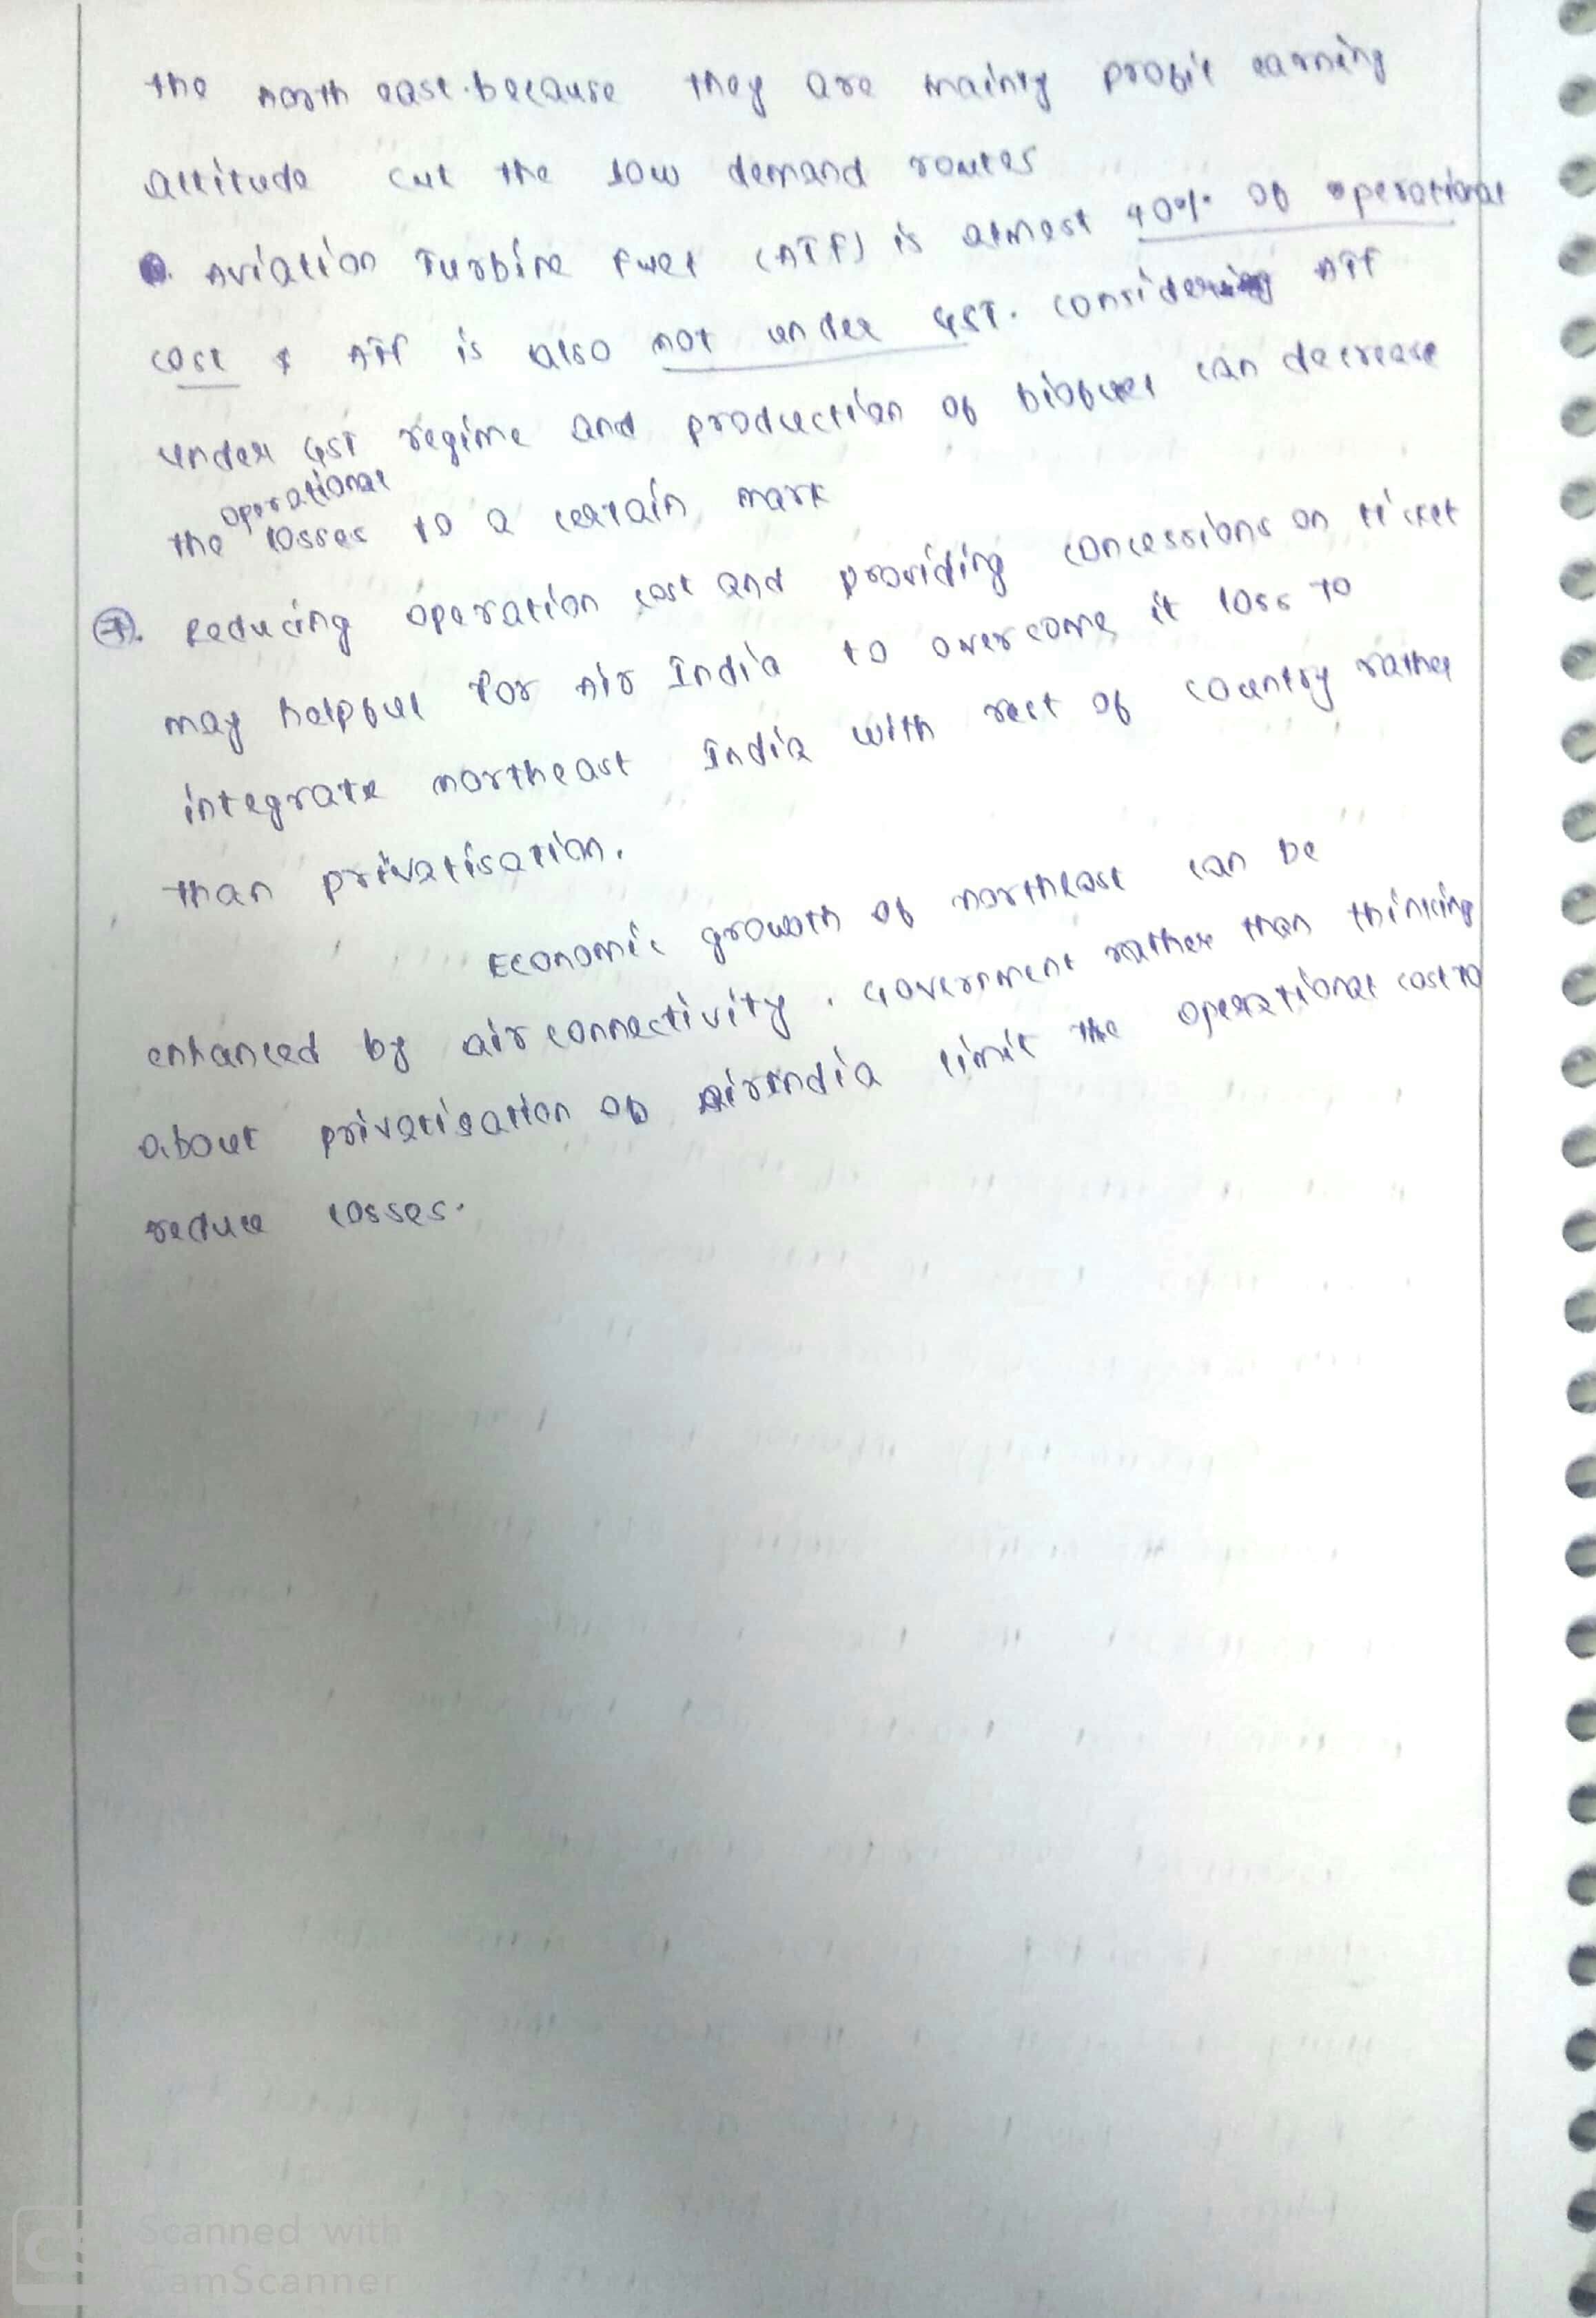 the north east. because they are mainly profit earning
attitude cut the low demand routes
Aviation Turbine Fuel (ATF) is almost 40% of operational
cost & ATF is also not under GST. considering ATF
under GST regime and production of biofuel can decrease
the operational losses to a certain mark
7. Reducing operation cost and providing concessions on ticket
may helpful for Air India to overcome it loss to
integrate northeast India with rest of country rather
than privatisation.
Economic growth of northeast can be
enhanced by air connectivity. Government rather than thinking
about privatisation of AirIndia limit the operational cost to
reduce losses.
CS
Scanned with
CamScanner